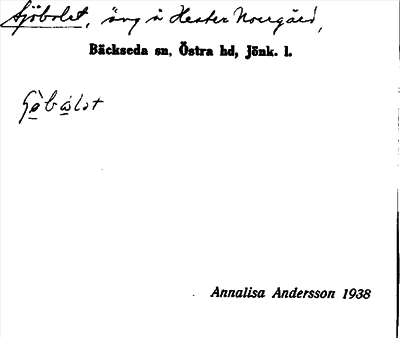 Sjöbolet, äng å Hester Norrgård,
Bäckseda sn, Östra hd, Jönk. l.
Annalisa Andersson 1938